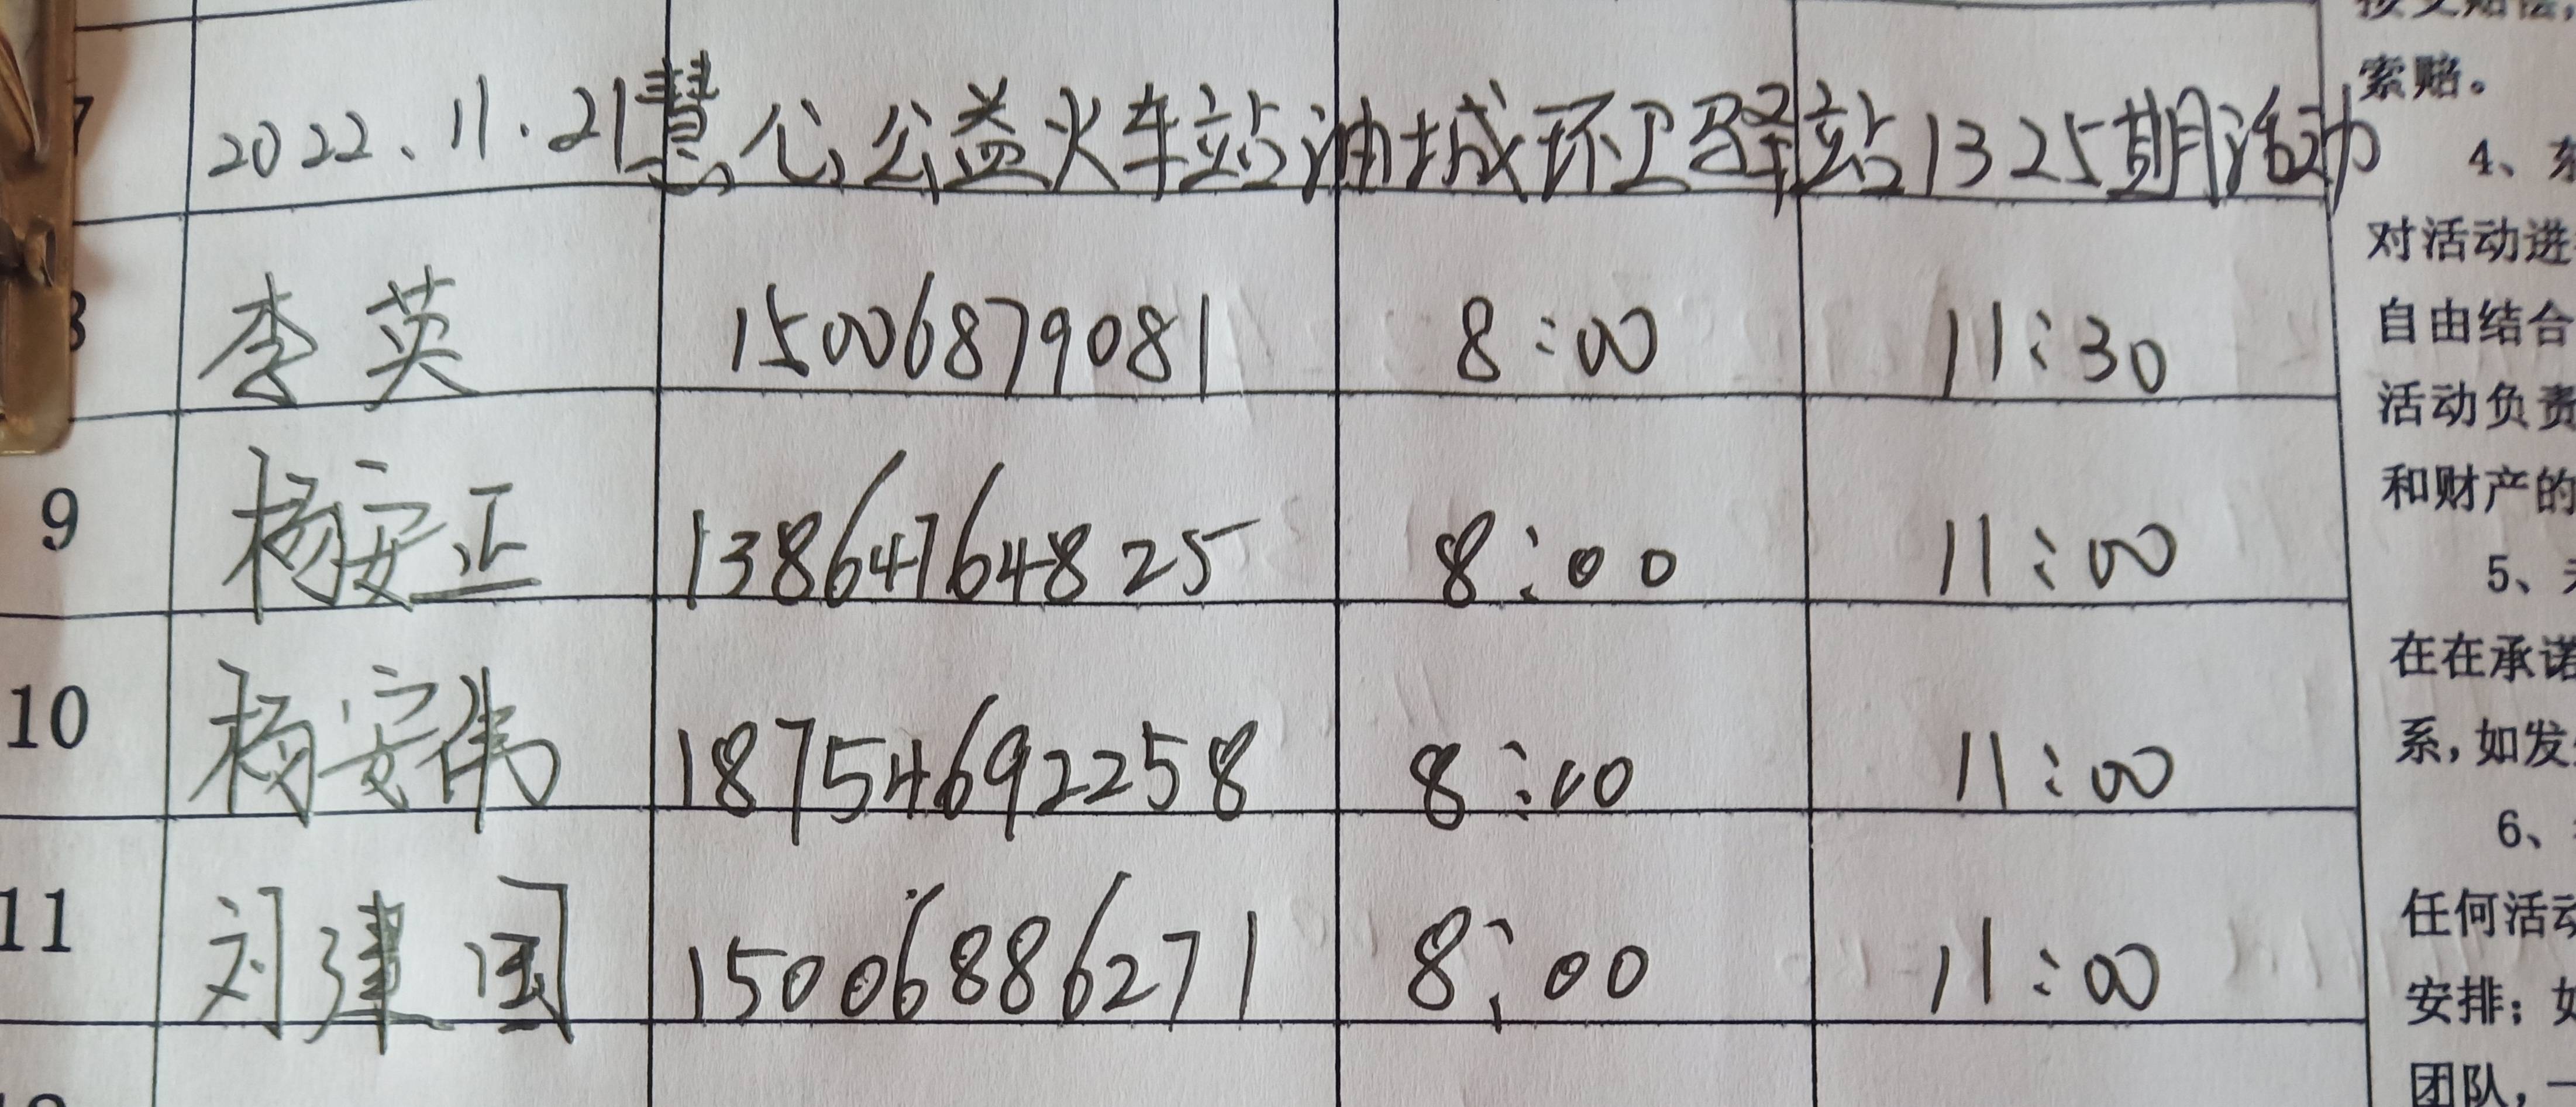 7 2022.11.21慧心公益火车站油城环卫驿站1325期活动
李英 15006879081 8:00 11:30
9 杨安正 13864764825 8:00 11:00
10 杨安伟 18754692258 8:00 11:00
11 刘建国 15006886271 8:00 11:00
索赔。
4、
对活动进
自由结合
活动负责
和财产的
5、
在在承诺
系,如发
6、
任何活动
安排;如
团队,一